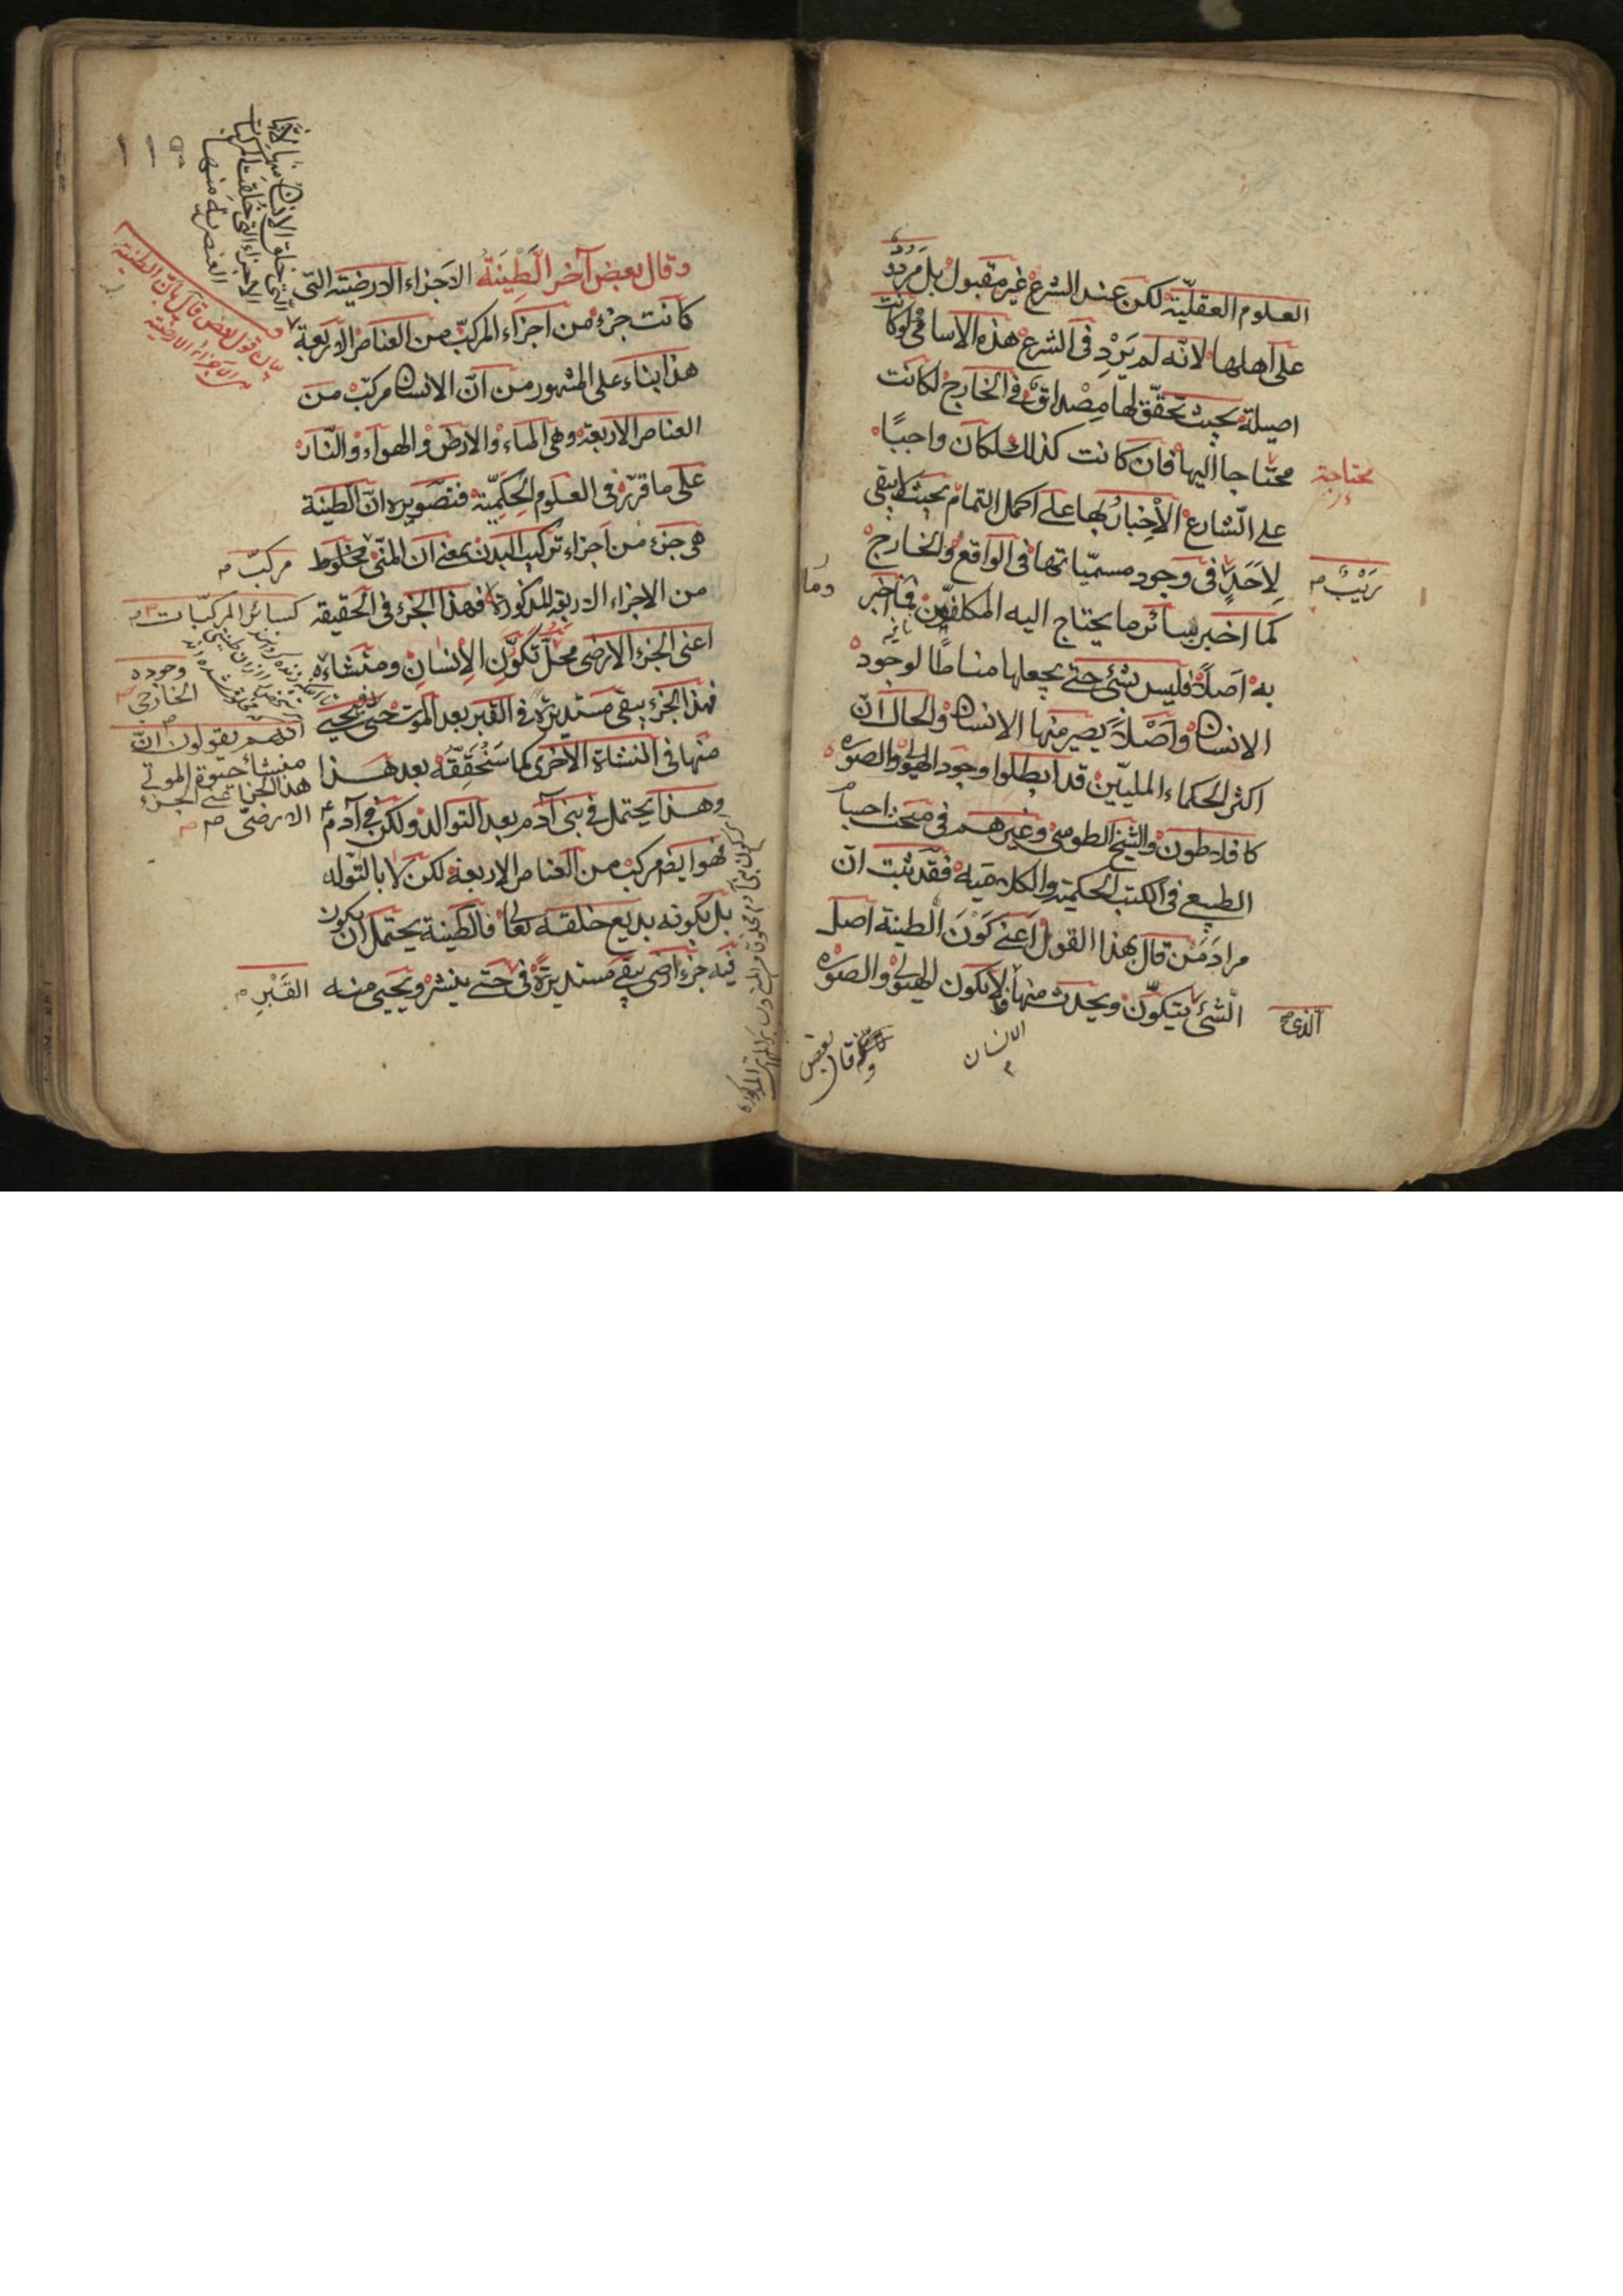 العلوم العقليّة لكن عند الشرع غير مقبول بل مردود
على اهلها لانّه لم يَرِد فى الشرع هذه الاسامى لو كانت
اصيلة بحيث تحقّق لها مِصْداق فى الخارج لكانت
محتاجا اليها فان كانت كذلك لكان واجبًا
محتاجة
على الشارع الاخبار بها على اكمل التمام بحيث لا يبقى
لِاَحَدٍ فى وجود مسمّياتها فى الواقع والخارج
رَيْبٌ
كما اخبر بسائر ما يحتاج اليه المكلفون فما اخبر
وما
به اصلاً فليس بشئ حتى يجعلها مناطًا لوجود
الانسان واَصْلاً يصير منها الانسان والحال انّ
اكثر الحكماء المليّين قد ابطلوا وجود الهيولى والصوره
كافلاطون والشيخ الطوسى وغيرهم فى مبحث
الطبيع فى الكتب الحكمية والكلاميه فقد ثبت انّ
مرادَ مَنْ قال بهذا القول اعنى كَوْنَ الطينة اصل
الشئ يتكوّن ويحدث منها لا يكون الهيولى والصوره
الذى
الانسان
وقال بعض
١١٩
وقال بعض آخر الطِينَةُ الاجزاء الارضيته التى
كانت جزء من اجزاء المركّب من العناصر الاربعة
هذا بناء على المشهور من انّ الانسان مركّب من
العناصر الاربعة وهى الماء والارض والهواء والنّار
على ما قرّر فى العلوم الحِكَمِيّة فتصويره انّ الطينة
هى جزء من اجزاء تركيب البدن بمعنى ان المنّى مخلوط
مركّب
من الاجزاء الاربعة المذكورة فهذا الجزء فى الحقيقه
كسائر المركّبات
اعنى الجزء الارضى محلّ تكوّن الاِنسانِ ومنشاءه
وجوده
الخارجى
فهذا الجزء يبقى مستديرة فى القبر بعد الموت حتى يحيى
منها فى النشاة الاخرى كما سَنُحَقِّقُه بعد هذا
اللهم يقولون انّ
منشأ حيوة الموتى
هذا الجزء
الارضى
وهذا يحتمل فى بنى آدم بعد التوالد ولكن فى آدم
فهو ايضا مركب من العناصر الاربعة لكن لا بالتولد
بل بكونه بديع خلقه تعالى فالطينة يحتمل ان يكون
فيه جزء ارضى يبقى مستديرة فى حتى ينشر ويحيى منه
القَبْرِ
الاجزاء التى خلقت المركبات
العنصرية منها
بيان قول بعض قال بان الطينة
من الاجزاء الارضيّة